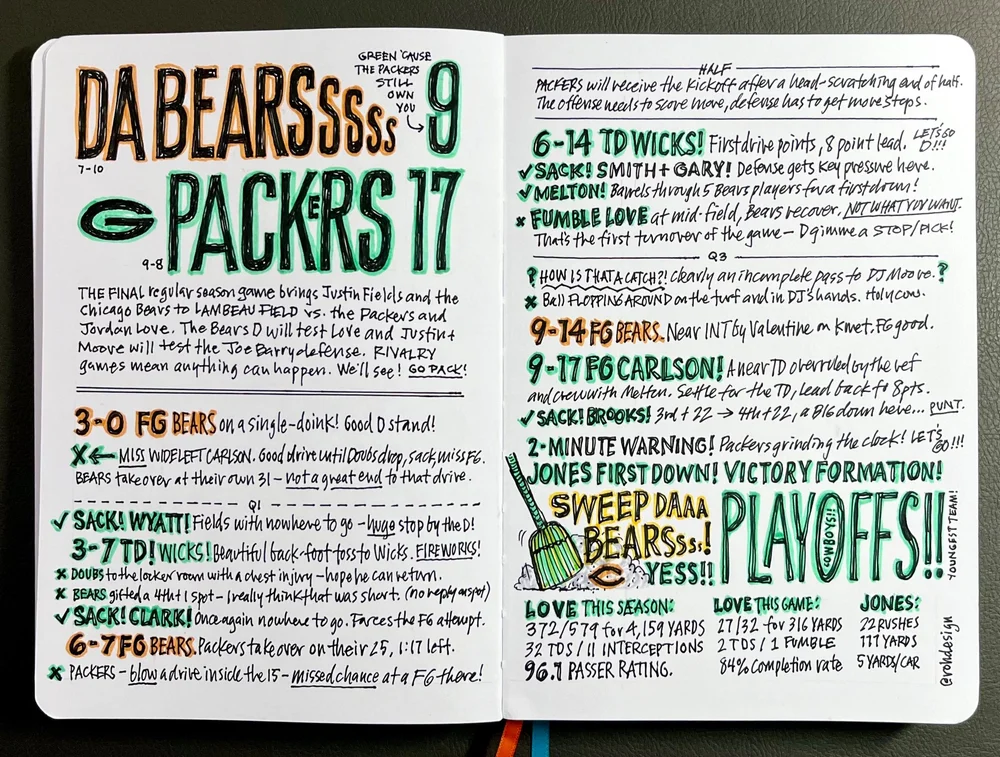 DA BEARSSSSSS 9
GREEN 'CAUSE
THE PACKERS
STILL
OWN
YOU
7-10
G PACKERS 17
9-8
THE FINAL regular season game brings Justin Fields and the
Chicago Bears to LAMBEAU FIELD vs. the Packers and
Jordan Love. The Bears D will test Love and Justin +
Moore will test the Joe Barry defense. RIVALRY
games mean anything can happen. We'll see! GO PACK!
3-0 FG BEARS on a single-doink! Good D stand!
X← MISS WIDE LEFT CARLSON. Good drive until Doubs drop, sack, miss FG.
BEARS take over at their own 31 - not a great end to that drive.
Q1
✓ SACK! WYATT! Fields with nowhere to go - huge stop by the D!
3-7 TD! WICKS! Beautiful back-foot toss to Wicks. FIREWORKS!
x DOUBS to the locker room with a chest injury - hope he can return.
x BEARS gifted a 4th+1 spot - I really think that was short. (no replay on spot)
✓ SACK! CLARK! Once again nowhere to go. Forces the FG attempt.
6-7 FG BEARS. Packers take over on their 25, 1:17 left.
x PACKERS - blow a drive inside the 15 - missed chance at a FG there!
HALF
PACKERS will receive the kickoff after a head-scratching end of half.
The offense needs to score more, defense has to get more stops.
6-14 TD WICKS! First drive points, 8 point lead. LET'S GO D!!!
✓ SACK! SMITH + GARY! Defense gets key pressure here.
✓ MELTON! Barrels through 5 Bears players for a first down!
x FUMBLE LOVE at mid-field, Bears recover. NOT WHAT YOU WANT.
That's the first turnover of the game - D gimme a STOP/PICK!
Q3
? HOW IS THAT A CATCH?! Clearly an incomplete pass to DJ Moore. ?
x Ball FLOPPING AROUND on the turf and in DJ's hands. Holy cow.
9-14 FG BEARS. Near INT by Valentine on Kmet. FG good.
9-17 FG CARLSON! A near TD overruled by the ref
and crew with Melton. Settle for the TD, lead back to 8pts.
✓ SACK! BROOKS! 3rd + 22 → 4th + 22, a BIG down here... PUNT.
2-MINUTE WARNING! Packers grinding the clock! LET'S GO!!!
JONES FIRST DOWN! VICTORY FORMATION!
SWEEP DAAA
BEARSSSS!
C YESS!!
PLAYOFFS!!
COWBOYS!!
YOUNGEST TEAM!
LOVE THIS SEASON:
372/579 for 4,159 YARDS
32 TDS / 11 INTERCEPTIONS
96.7 PASSER RATING.
LOVE THIS GAME:
27/32 for 316 YARDS
2 TDS / 1 FUMBLE
84% Completion rate
JONES:
22 RUSHES
111 YARDS
5 YARDS/CAR
@rohdesign